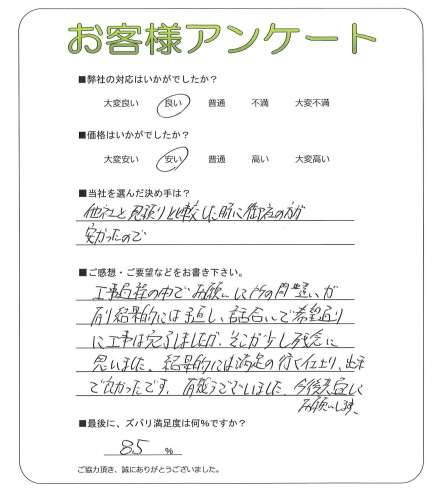 お客様アンケート
■弊社の対応はいかがでしたか?
大変良い 良い 普通 不満 大変不満
■価格はいかがでしたか?
大変安い 安い 普通 高い 大変高い
■当社を選んだ決め手は?
他社と見積り比較した際に御社の方が
安かったので
■ご感想・ご要望などをお書き下さい。
工事過程の中でお願いした所の間違いが
有り結果的には手直し、話合いで希望通り
に工事は完了しましたが、そこが少し残念に
思いました。結果的には満足の行く仕上り、出来
で良かったです。有難うございました。今後共宜しく
お願いします。
■最後に、ズバリ満足度は何%ですか?
85 %
ご協力頂き、誠にありがとうございました。